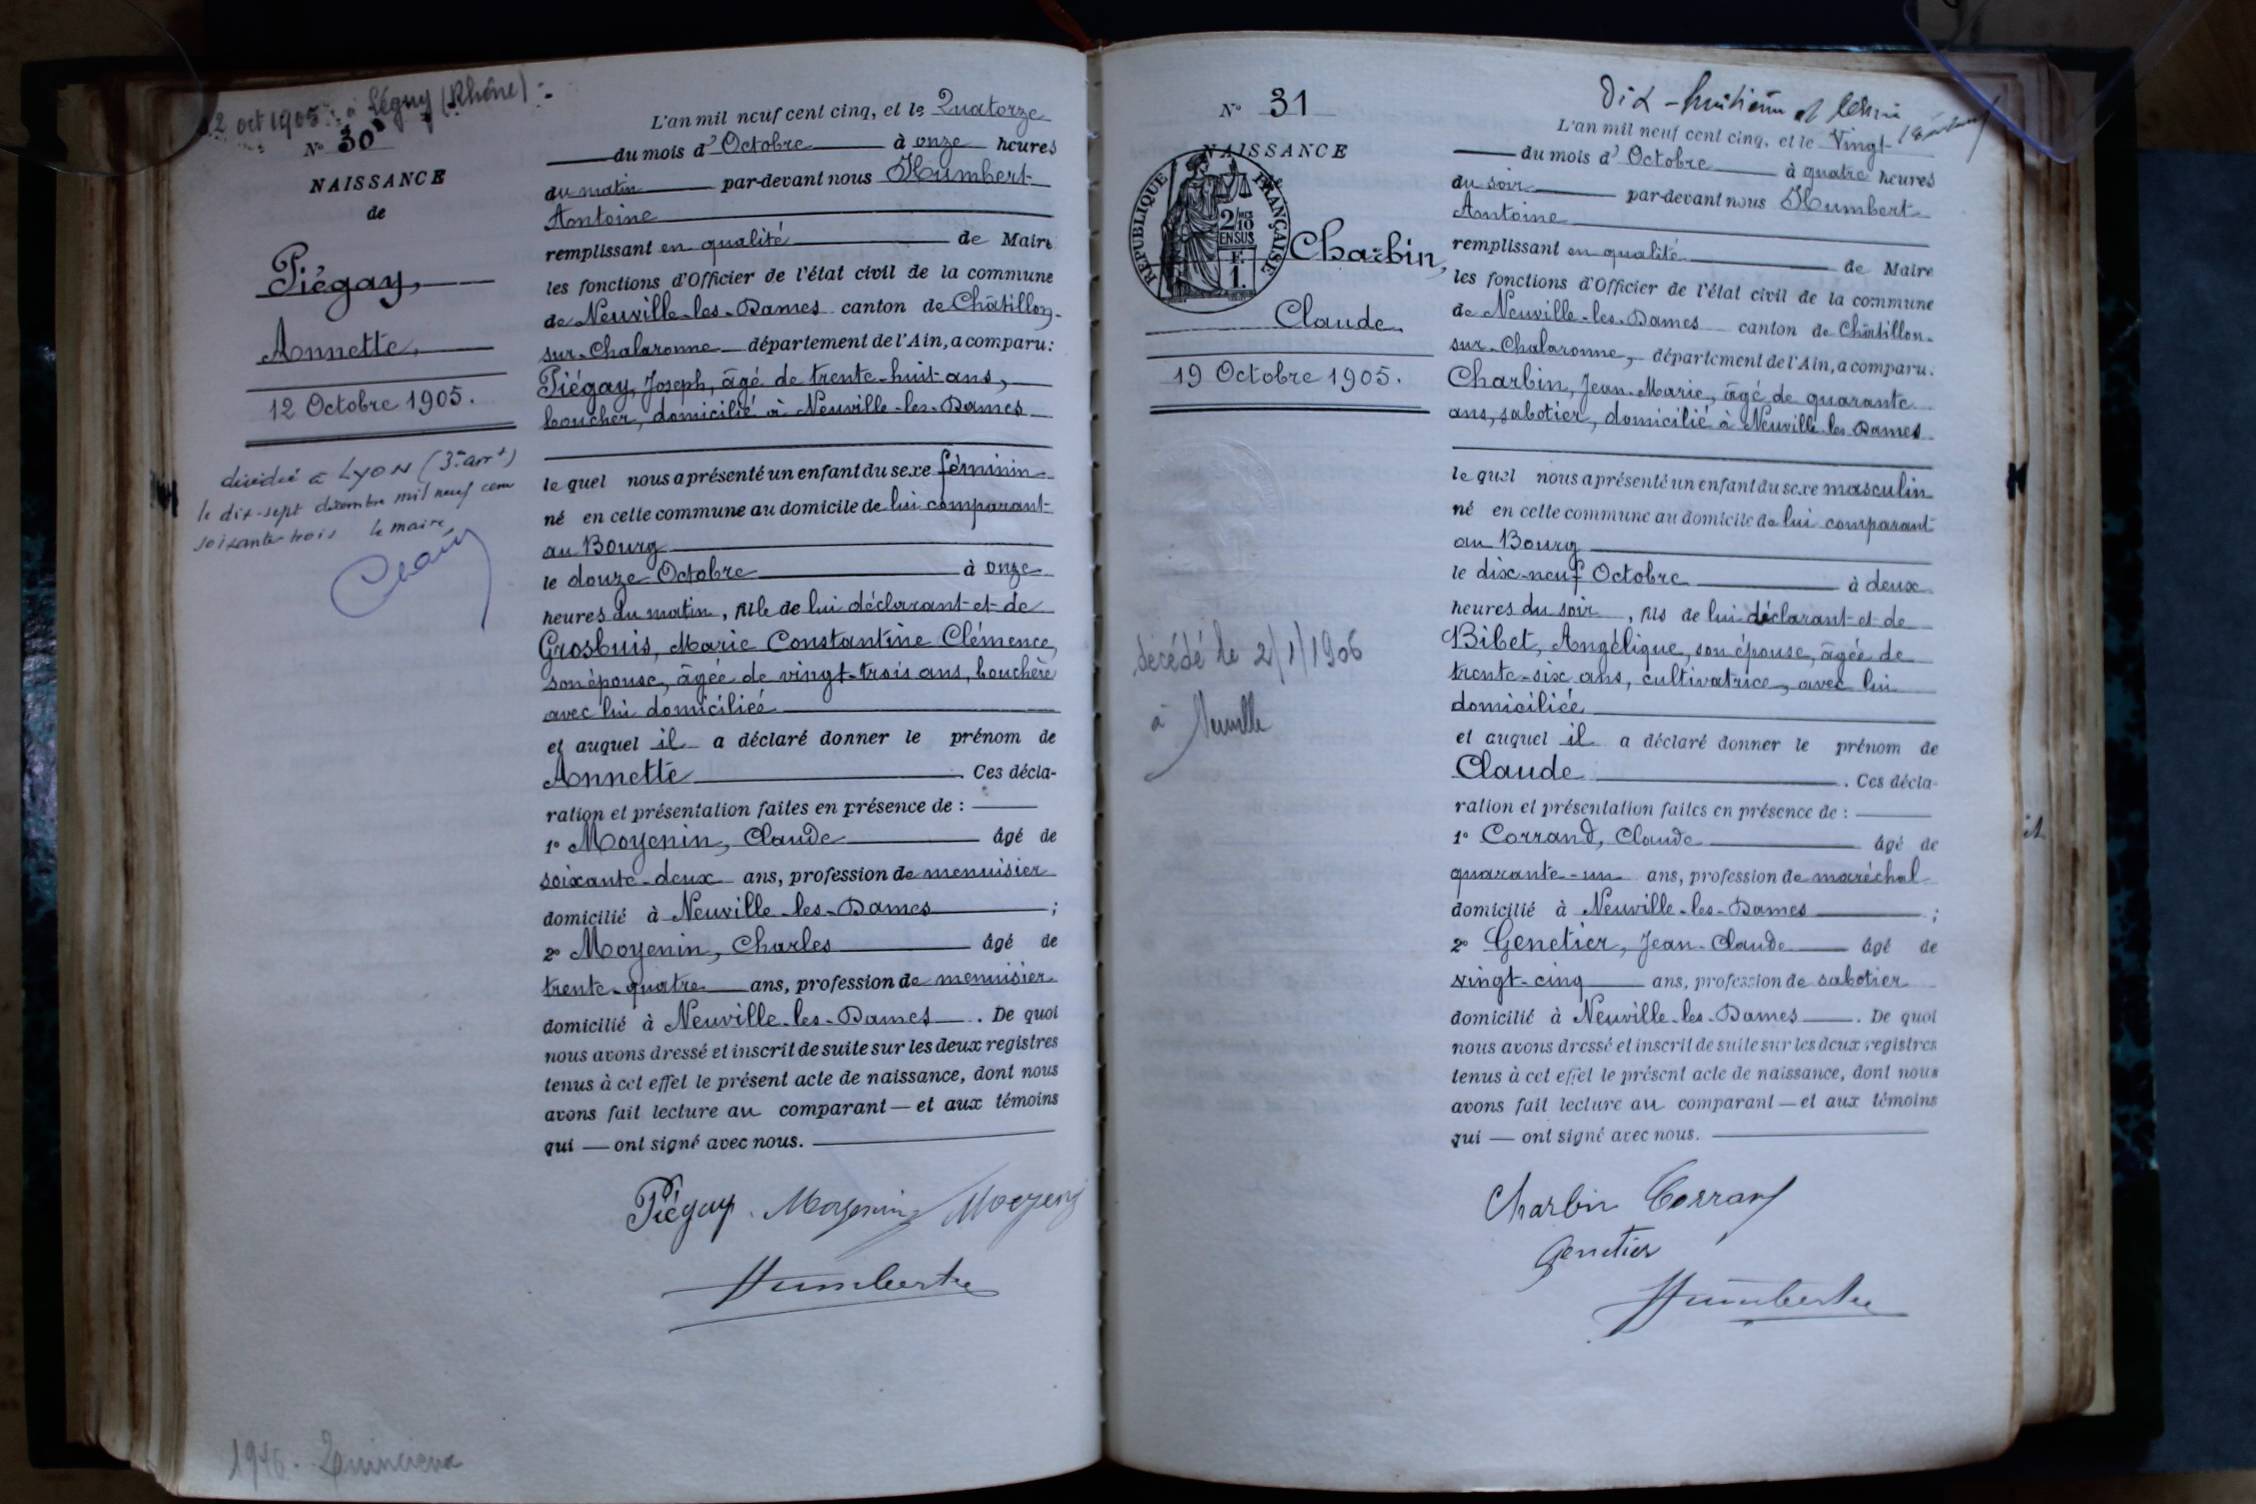 2 oct 1905 : à Légny (Rhône) :
N° 30
NAISSANCE
de
Piégay,
Annette,
12 Octobre 1905.
décédée à LYON (3e arrt)
le dix-sept décembre mil neuf cent
soixante trois le maire
1946. Quincieux
L'an mil neuf cent cinq, et le Quatorze
du mois d'Octobre à onze heures
du matin par-devant nous Humbert
Antoine
remplissant en qualité de Maire
les fonctions d'Officier de l'état civil de la commune
de Neuville-les-Dames canton de Châtillon-
sur-Chalaronne département de l'Ain, a comparu:
Piégay, Joseph, âgé de trente-huit ans,
boucher, domicilié à Neuville-les-Dames
le quel nous a présenté un enfant du sexe féminin
né en cette commune au domicile de lui comparant
au Bourg
le douze Octobre à onze
heures du matin, fille de lui déclarant et de
Grosbuis, Marie Constantine Clémence,
son épouse, âgée de vingt-trois ans, bouchère
avec lui domiciliée
et auquel il a déclaré donner le prénom de
Annette. Ces décla-
ration et présentation faites en présence de :
1° Moyenin, Claude âgé de
soixante-deux ans, profession de menuisier
domicilié à Neuville-les-Dames ;
2° Moyenin, Charles âgé de
trente-quatre ans, profession de menuisier
domicilié à Neuville-les-Dames. De quoi
nous avons dressé et inscrit de suite sur les deux registres
tenus à cet effet le présent acte de naissance, dont nous
avons fait lecture au comparant — et aux témoins
qui — ont signé avec nous.
Piégay. Moyenin Moyenin
Humbert
N° 31
NAISSANCE
RÉPUBLIQUE FRANÇAISE
2/10
EN SUS
F.
1.
Charbin,
Claude
19 Octobre 1905.
décédé le 2/1/1906
à Neuville
Dix-huitième et dernier
L'an mil neuf cent cinq, et le Vingt
du mois d'Octobre à quatre heures
du soir par-devant nous Humbert
Antoine
remplissant en qualité de Maire
les fonctions d'Officier de l'état civil de la commune
de Neuville-les-Dames canton de Châtillon-
sur-Chalaronne, département de l'Ain, a comparu:
Charbin, Jean-Marie, âgé de quarante
ans, sabotier, domicilié à Neuville-les-Dames
le quel nous a présenté un enfant du sexe masculin
né en cette commune au domicile de lui comparant
au Bourg
le dix-neuf Octobre à deux
heures du soir, fils de lui déclarant et de
Bibet, Angélique, son épouse, âgée de
trente-six ans, cultivatrice, avec lui
domiciliée
et auquel il a déclaré donner le prénom de
Claude. Ces décla-
ration et présentation faites en présence de :
1° Corrand, Claude âgé de
quarante-un ans, profession de maréchal
domicilié à Neuville-les-Dames ;
2° Genetier, Jean-Claude âgé de
vingt-cinq ans, profession de sabotier
domicilié à Neuville-les-Dames. De quoi
nous avons dressé et inscrit de suite sur les deux registres
tenus à cet effet le présent acte de naissance, dont nous
avons fait lecture au comparant — et aux témoins
qui — ont signé avec nous.
Charbin Corrand
Genetier
Humbert